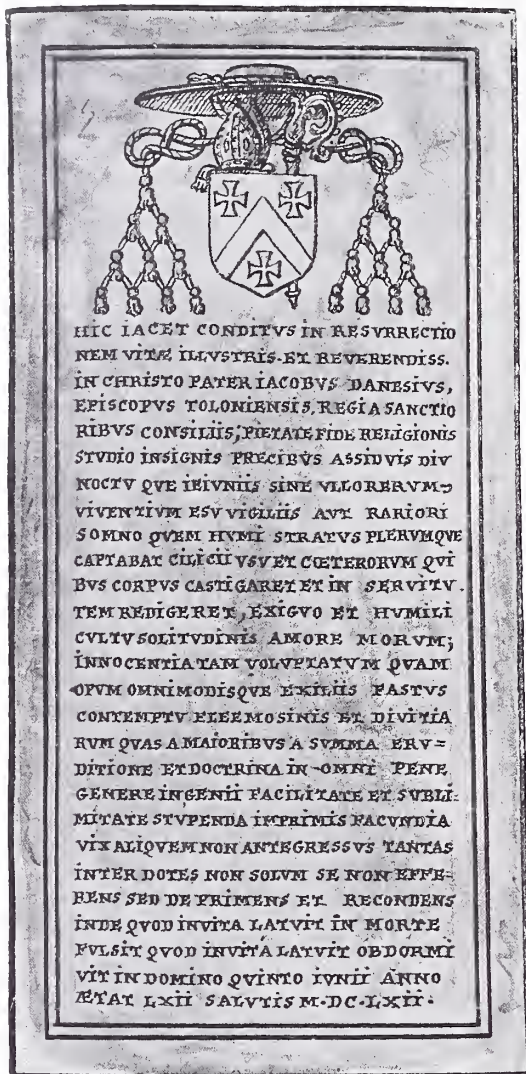 HIC IACET CONDITVS IN RESVRRECTIO
NEM VITÆ ILLVSTRIS· ET REVERENDISS.
IN CHRISTO PATER IACOBVS DANESIVS,
EPISCOPVS TOLONIENSIS, REGI A SANCTIO
RIBVS CONSILIIS, PIETATE FIDE RELIGIONIS
STVDIO INSIGNIS PRECIBVS ASSIDVIS DIV
NOCTV QVE IEIVNIIS SINE VLLO RERVM
VIVENTIVM ESV VIGILIIS AVT RARIORI
SOMNO QVEM HVMI STRATVS PLERVMQVE
CAPTABAT CILICII VSV ET CŒTERORVM QVI
BVS CORPVS CASTIGARET ET IN SERVITV-
TEM REDIGERET, EXIGVO ET HVMILI
CVLTV SOLITVDINIS AMORE MORVM;
INNOCENTIA TAM VOLVPTATVM QVAM
OPVM OMNIMODISQVE EXILIIS FASTVS
CONTEMPTV ELEEMOSINIS ET DIVITIA
RVM QVAS A MAIORIBVS A SVMMA ERV=
DITIONE ET DOCTRINA IN OMNI PENE
GENERE INGENII FACILITATE ET SVBLI-
MITATE STVPENDA IMPRIMIS FACVNDIA
VIX ALIQVEM NON ANTEGRESSVS TANTAS
INTER DOTES NON SOLVM SE NON EFFE-
RENS SED DEPRIMENS ET RECONDENS
INDE QVOD INVITA LATVIT IN MORTE
FVLSIT QVOD INVITA LATVIT OBDORMI
VIT IN DOMINO QVINTO IVNII ANNO
ÆTAT LXII SALVTIS M·DC·LXII·